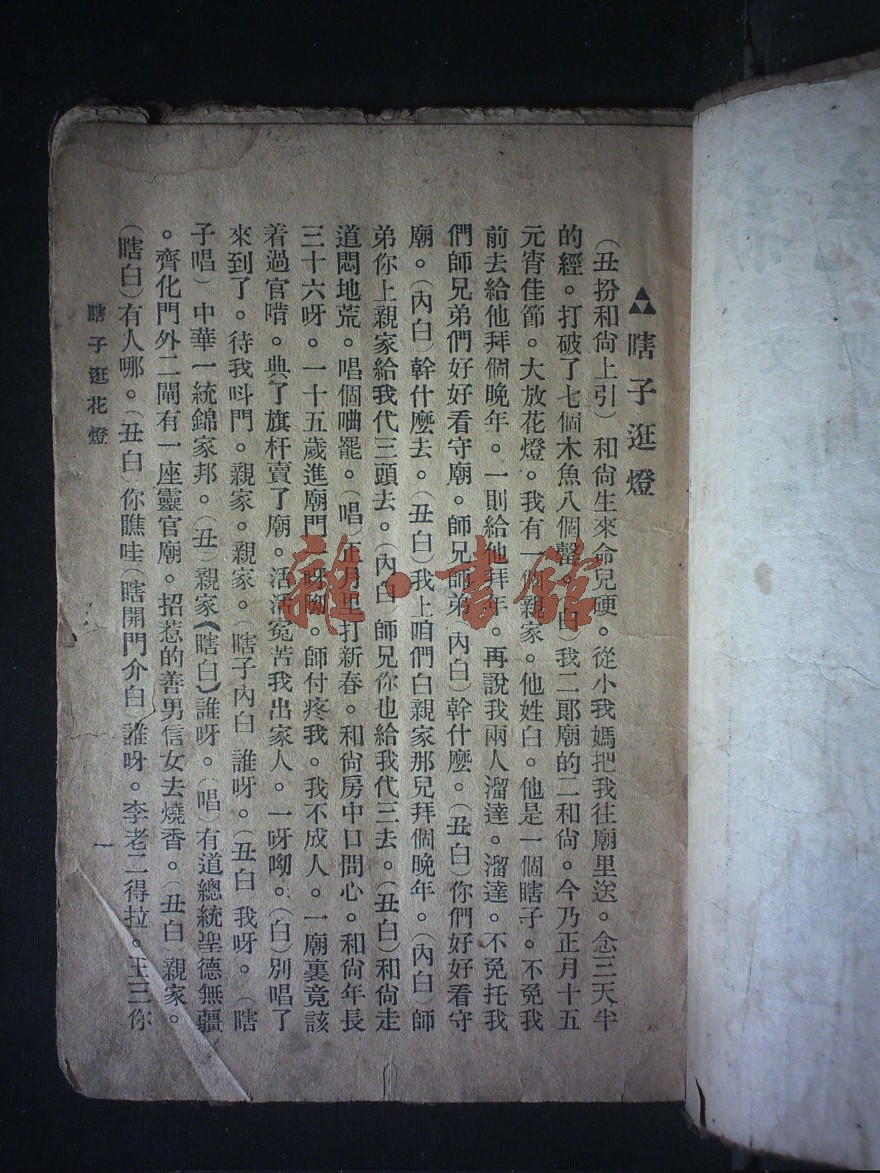 ▲瞎子逛燈
(丑扮和尙上引) 和尙生來命兒硬。從小我媽把我往廟里送。念三天半
的經。打破了七個木魚八個磬。(白)我二郎廟的二和尙。今乃正月十五
元宵佳節。大放花燈。我有一個親家。他姓白。他是一個瞎子。不免我
前去給他拜個晚年。一則給他拜年。再說我兩人溜達。溜達。不免托我
們師兄弟們好好看守廟。師兄師弟(內白)幹什麽。(丑白)你們好好看守
廟。(內白)幹什麽去。(丑白)我上咱們白親家那兒拜個晚年。(內白)師
弟你上親家給我代三頭去。(內白 師兄你也給我代三去。(丑白)和尙走
道悶地荒。唱個嘈罷。(唱)正月里打新春。和尙房中口問心。和尙年長
三十六呀。一十五歲進廟門一呀呦。師付疼我。我不成人。一廟裏竟該
着過官啃。典了旗杆賣了廟。活活冤苦我出家人。一呀呦。(白)別唱了
來到了。待我呌門。親家。親家。(瞎子內白 誰呀。(丑白 我呀。(瞎
子唱) 中華一統錦家邦。(丑)親家(瞎白)誰呀。(唱)有道總統聖德無疆
。齊化門外二閘有一座靈官廟。招惹的善男信女去燒香。(丑白 親家。
(瞎白)有人哪。(丑白)你瞧哇(瞎開門介白 誰呀。李老二得拉。王三你
瞎子逛花燈
一
雜·書館